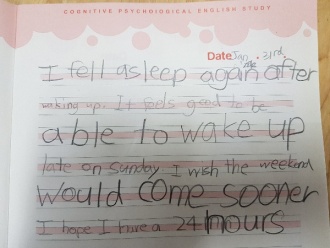 COGNITIVE PSYCHOLOGICAL ENGLISH STUDY
Date Jan. 31rd
I fell asleep again after
waking up. It feels good to be
able to wake up
late on Sunday I wish the weekend
would come sooner
I hope I have a 24 hours